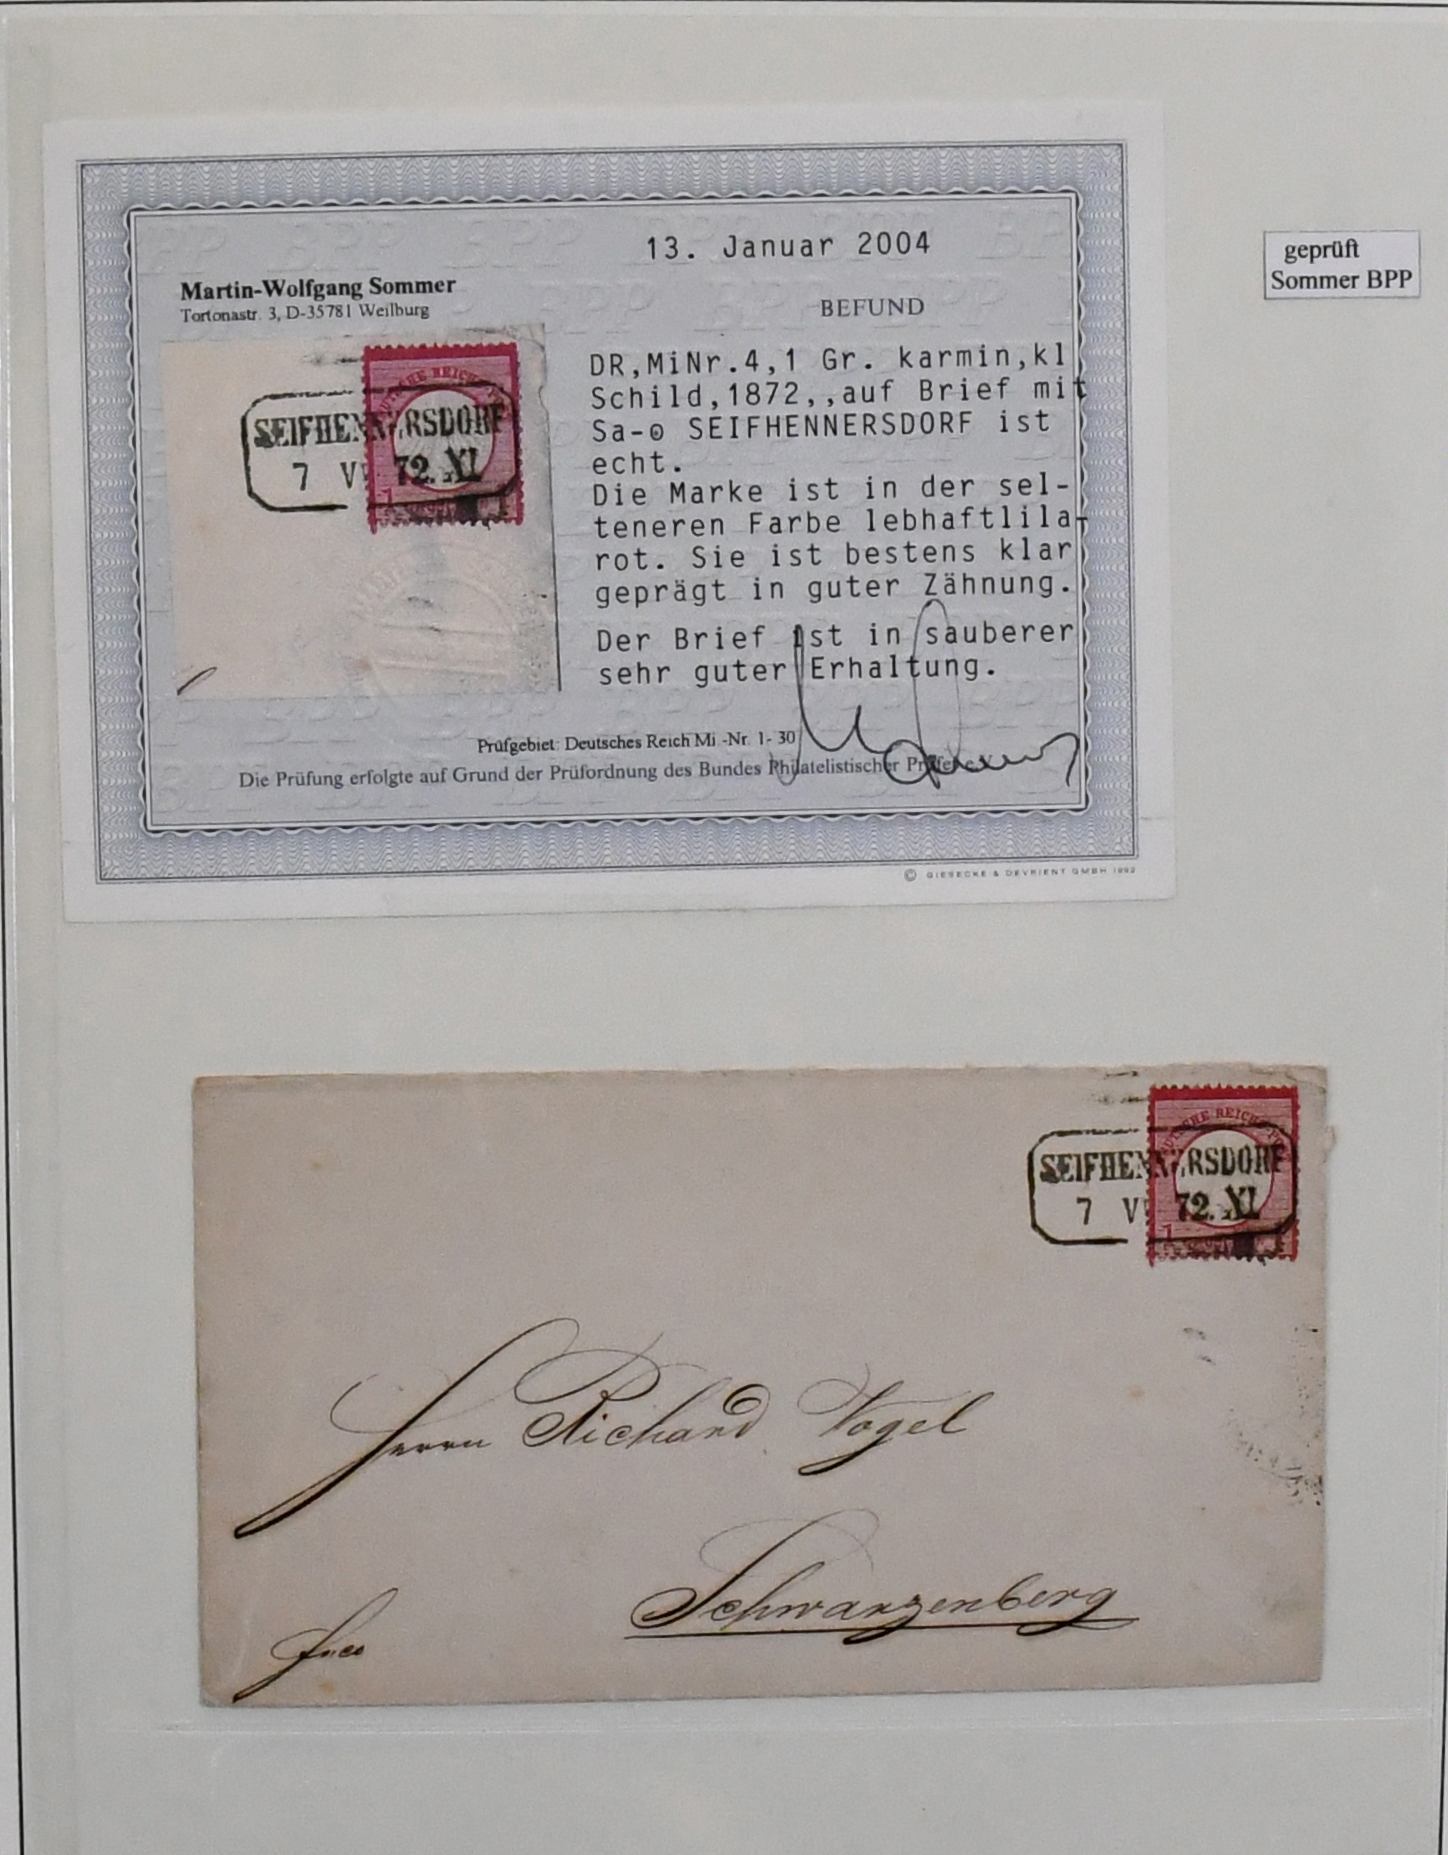 13. Januar 2004
Martin-Wolfgang Sommer
Tortonastr. 3, D-35781 Weilburg
BEFUND
DR,MiNr.4,1 Gr. karmin,kl
Schild,1872,,auf Brief mit
Sa-⊙ SEIFHENNERSDORF ist
echt.
Die Marke ist in der sel-
teneren Farbe lebhaftlila-
rot. Sie ist bestens klar
geprägt in guter Zähnung.
Der Brief ist in sauberer
sehr guter Erhaltung.
SEIFHENNERSDORF
7 72. XI
1
Prüfgebiet: Deutsches Reich Mi.-Nr. 1- 30
Die Prüfung erfolgte auf Grund der Prüfordnung des Bundes Philatelistischer Prüfer e.V.
© GIESECKE & DEVRIENT GMBH 1992
geprüft
Sommer BPP
DEUTSCHE REICHS-POST
SEIFHENNERSDORF
7 72. XI
1
Herrn Richard Vogel
Schwarzenberg